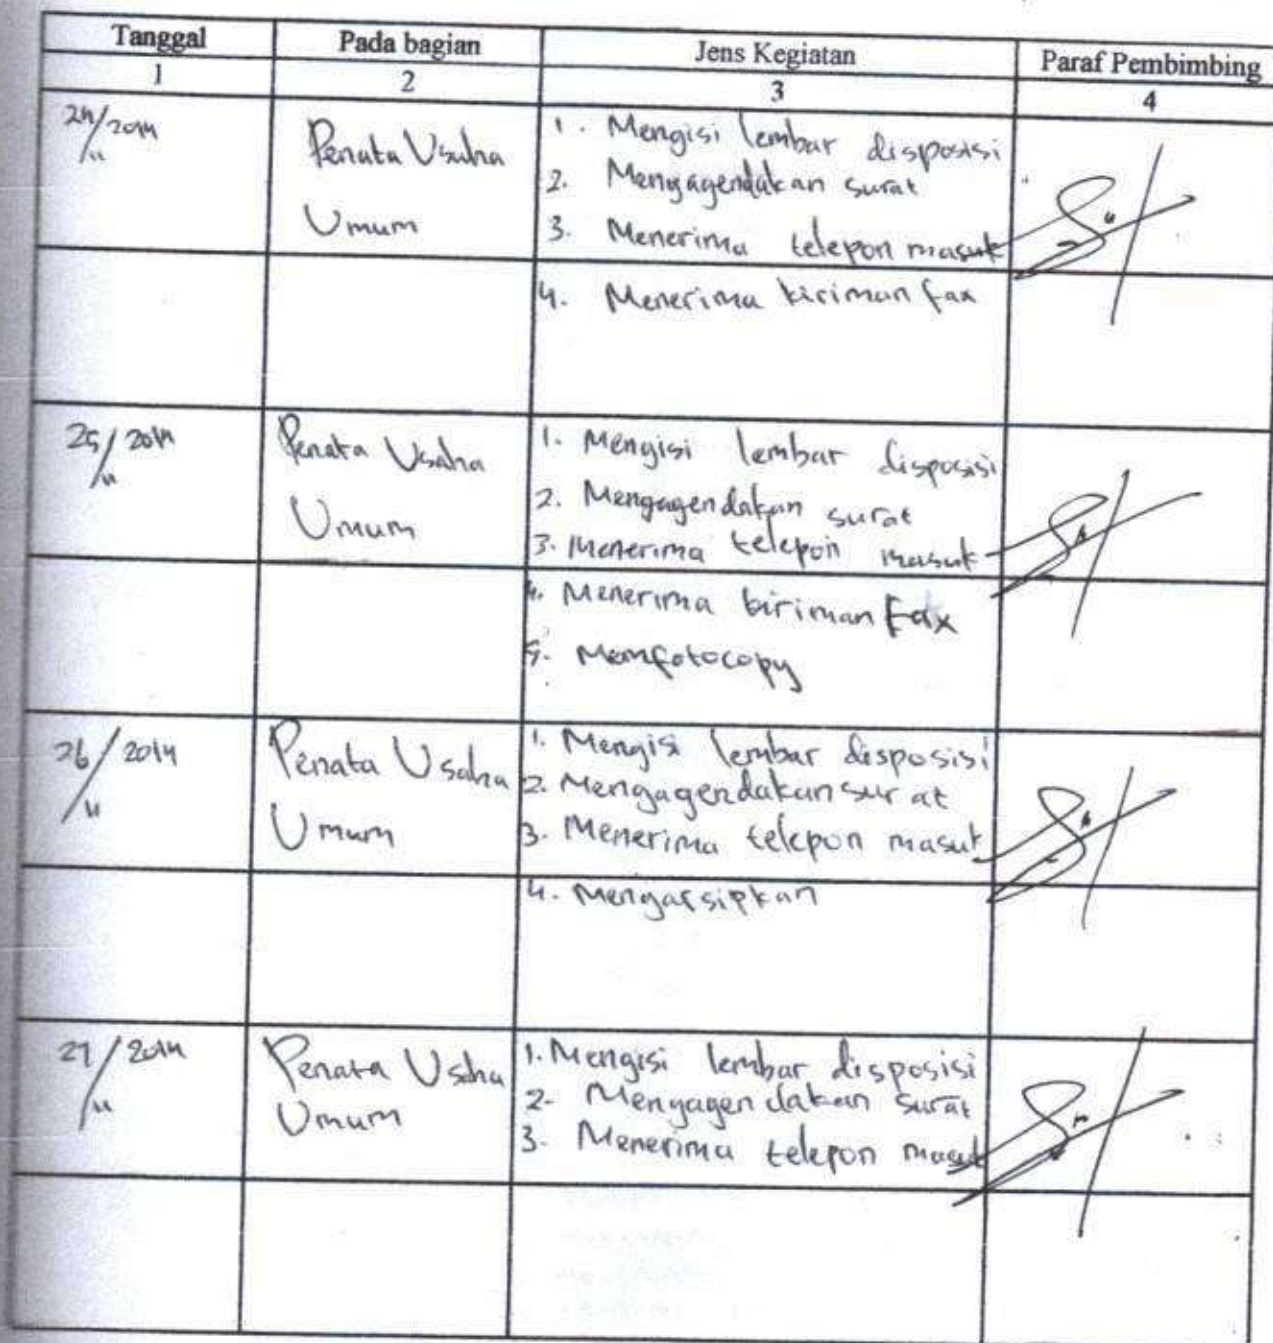 Tanggal Pada bagian Jens Kegiatan Paraf Pembimbing
1 2 3 4
24/11 2014 Penata Usaha Umum
1. Mengisi lembar disposisi
2. Mengagendakan surat
3. Menerima telepon masuk
4. Menerima kiriman fax
25/11 2014 Penata Usaha Umum
1. Mengisi lembar disposisi
2. Mengagendakan surat
3. Menerima telepon masuk
4. Menerima kiriman Fax
5. Memfotocopy
26/11 2014 Penata Usaha Umum
1. Mengisi lembar disposisi
2. Mengagendakan surat
3. Menerima telepon masuk
4. Mengarsipkan
27/11 2014 Penata Usaha Umum
1. Mengisi lembar disposisi
2. Mengagendakan surat
3. Menerima telepon masuk